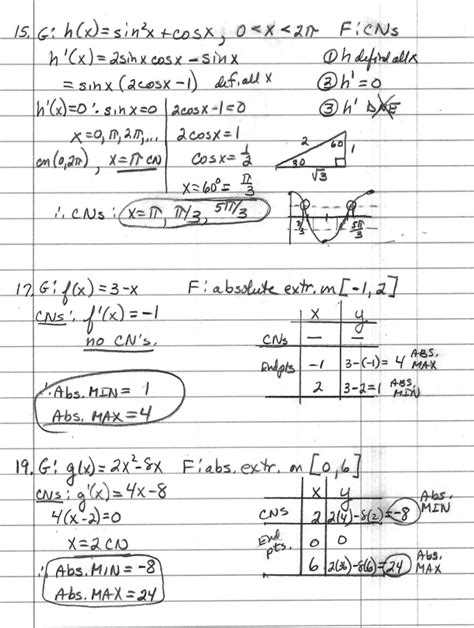 15. G: h(x) = sin²x + cosx, 0 < x < 2π F: CNs
h'(x) = 2sinx cosx - sinx ① h defind all x
= sinx (2cosx - 1) def. all x ② h' = 0
h'(x) = 0: sinx = 0 | 2cosx - 1 = 0 ③ h' DNE
x = 0, π, 2π, ... | 2cosx = 1
on (0, 2π), x = π CN | cosx = 1/2
2 60 1 30 √3
x = 60° = π/3
∴ CNs: x = π, π/3, 5π/3
π/3 1 5π/3
17. G: f(x) = 3 - x F: absolute extr. on [-1, 2]
CNs: f'(x) = -1
no CN's.
x | y
CNs — | —
Endpts -1 | 3-(-1) = 4 ABS. MAX
2 | 3-2 = 1 ABS. MIN
∴ Abs. MIN = 1
Abs. MAX = 4
19. G: g(x) = 2x² - 8x F: abs. extr. on [0, 6]
CNs: g'(x) = 4x - 8
4(x-2) = 0
x = 2 CN
x | y
CNS 2 | 2(4)-8(2) = -8 Abs. MIN
End pts. 0 | 0
6 | 2(36)-8(6) = 24 Abs. MAX
∴ Abs. MIN = -8
Abs. MAX = 24